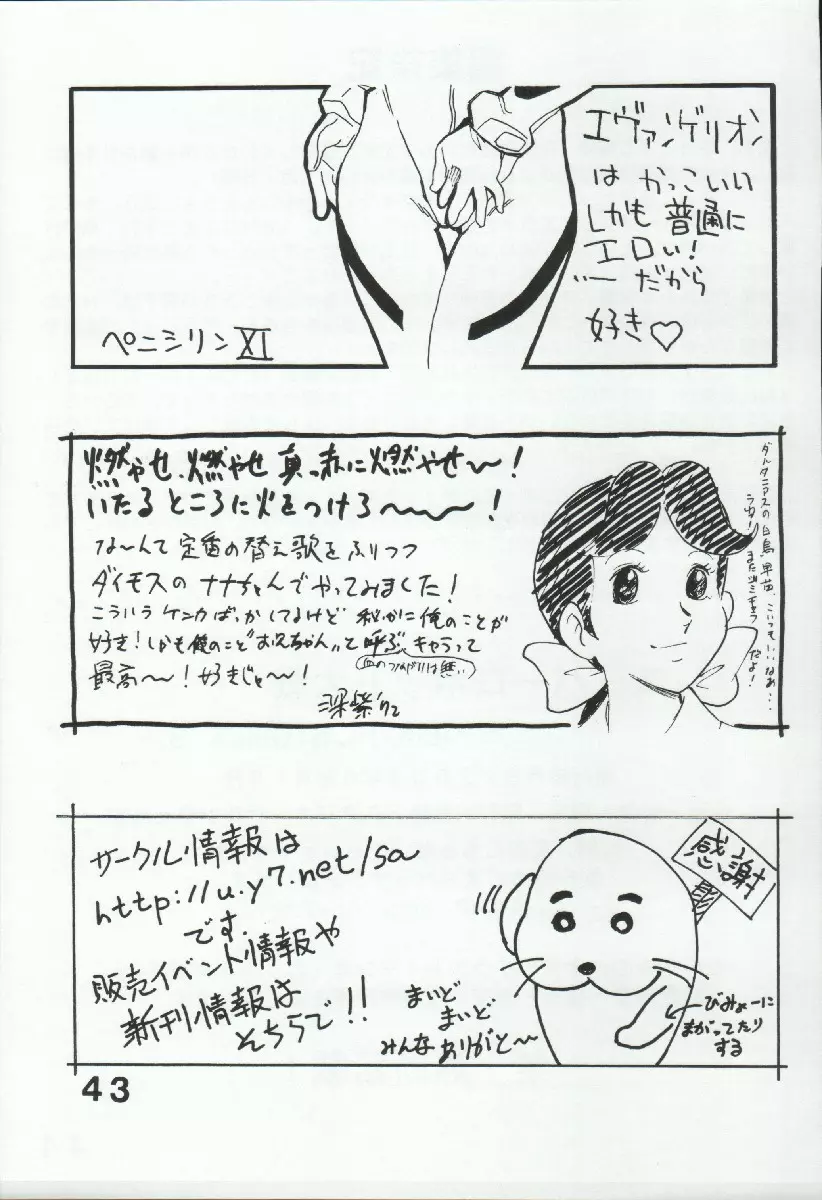 エヴァンゲリオン
は かっこいい
しかも 普通に
エロい!
…だから
好き♡
ペニシリンXI
燃やせ、燃やせ 真っ赤に燃やせ〜!
いたるところに火をつけろ〜〜〜!
な〜んて 定番の替え歌をふりつつ
ダイモスの ナナちゃんでやってみました!
こういう ケンカばっかしてるけど 秘かに俺のことが
好き!しかも俺のこと"お兄ちゃん"って 呼ぶ キャラって
(血のつながりは無い)
最高〜〜!好きじゃ〜〜!
深紫'02
ダルタニアスの白鳥早苗、こいつもいいなあ…
また
だよ!
サークル情報は
http://u.y7.net/sa
です.
販売イベント情報や
新刊情報は
そちらで!!
感謝
まいど
まいど
みんな ありがと〜
びみょーに
まがってたり
する
43